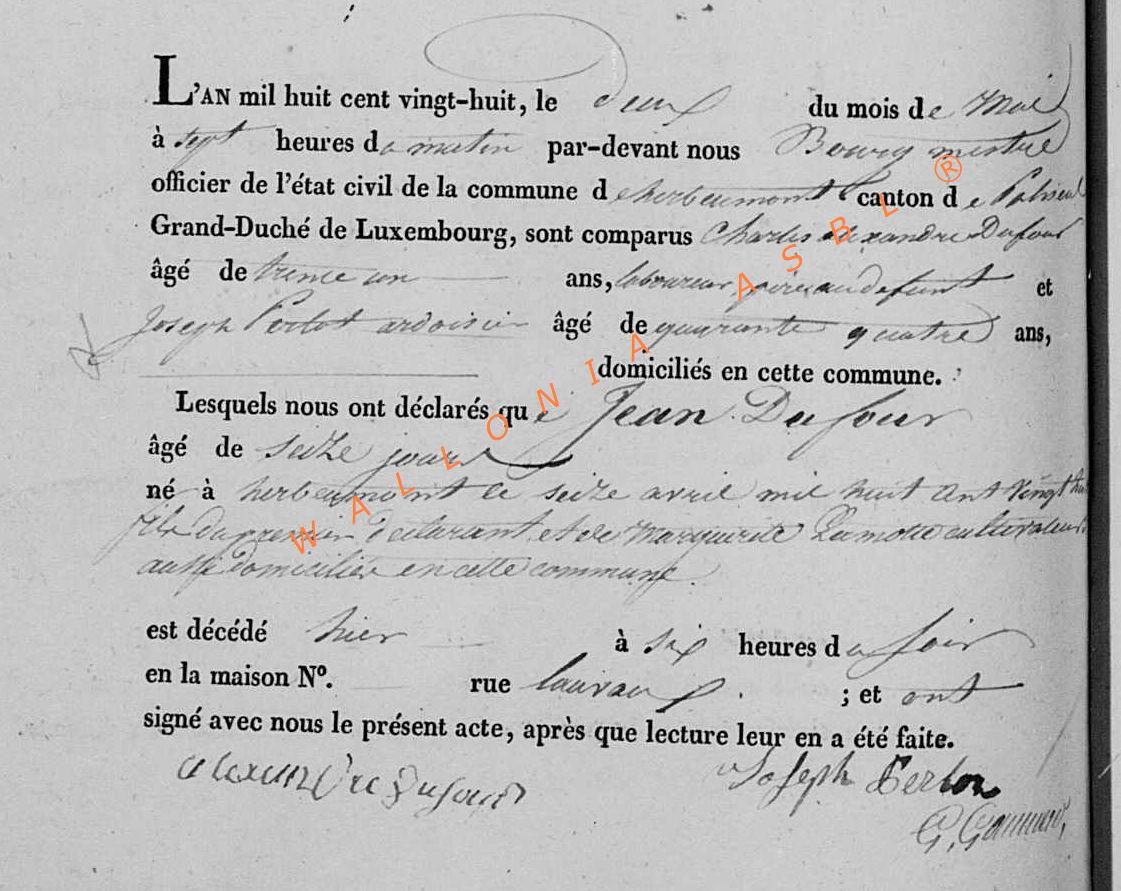 L'AN mil huit cent vingt-huit, le deux du mois de Mai
à sept heures du matin par-devant nous Bourgmestre
officier de l'état civil de la commune d'herbeumont canton de Paliseul
Grand-Duché de Luxembourg, sont comparus Charles alexandre Dufour
âgé de trente un ans, laboureur, père au defunt et
Joseph Perlot ardoisier âgé de quarante quatre ans,
domiciliés en cette commune.
Lesquels nous ont déclarés que Jean Dufour
âgé de seize jours
né à herbeumont le seize avril mil huit cent vingt huit
fils du premier déclarant, et de Marguerite Lamotte cultivateurs
aussi domicilier en cette commune.
est décédé hier à six heures du soir
en la maison N°. rue ; et ont
signé avec nous le présent acte, après que lecture leur en a été faite.
alexandre Dufour Joseph Perlot
WALLONIA ASBL ®